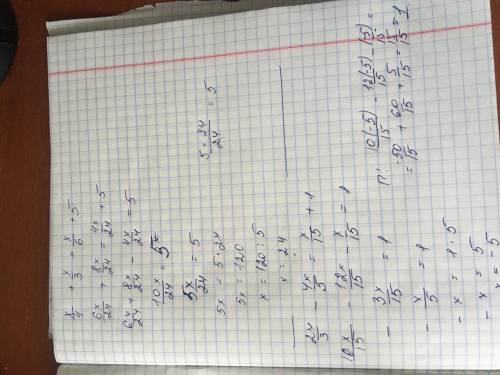 x/4 + x/3 = x/6 + 5
6x/24 + 8x/24 = 4x/24 + 5
6x/24 + 8x/24 - 4x/24 = 5
10x/24 = 5
5x/24 = 5
5x = 5·24
5x = 120
x = 120:5
x = 24
5·24/24 = 5
2x/3 - 4x/5 = x/15 + 1
10x/15 - 12x/15 - x/15 = 1
- 3x/15 = 1
- x/5 = 1
- x = 1·5
- x = 5
x = -5
П: 10(-5)/15 - 12(-5)/15 - (-5)/15 =
= -50/15 + 60/15 + 5/15 = 15/15 = 1